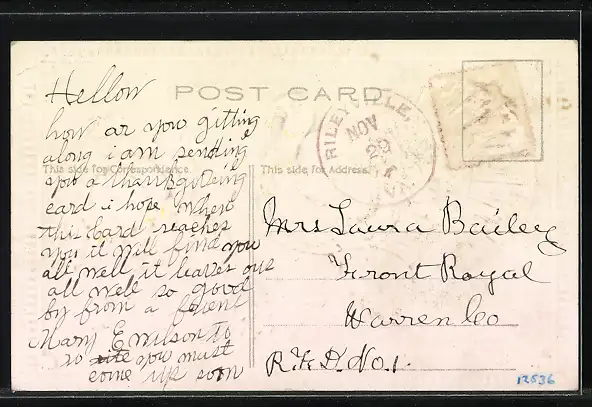 Hellow
POST CARD
how ar you gitting
along i am sending
you a thanksgiveing
card i hope When
this Card reaches
you it will find you
all well it leaves ous
all well so good
by from a frient
Mary E wilson To
so you must
come up soon
This side for Correspondence.
This side for Address.
RILEYVILLE,
NOV
29
VA.
Mrs Laura Bailey
Front Royal
Warren Co
R.F.D. No. 1.
12536